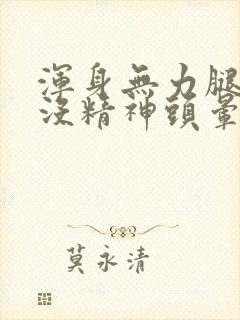 渾身無力腿
沒精神頭暈
莫永清